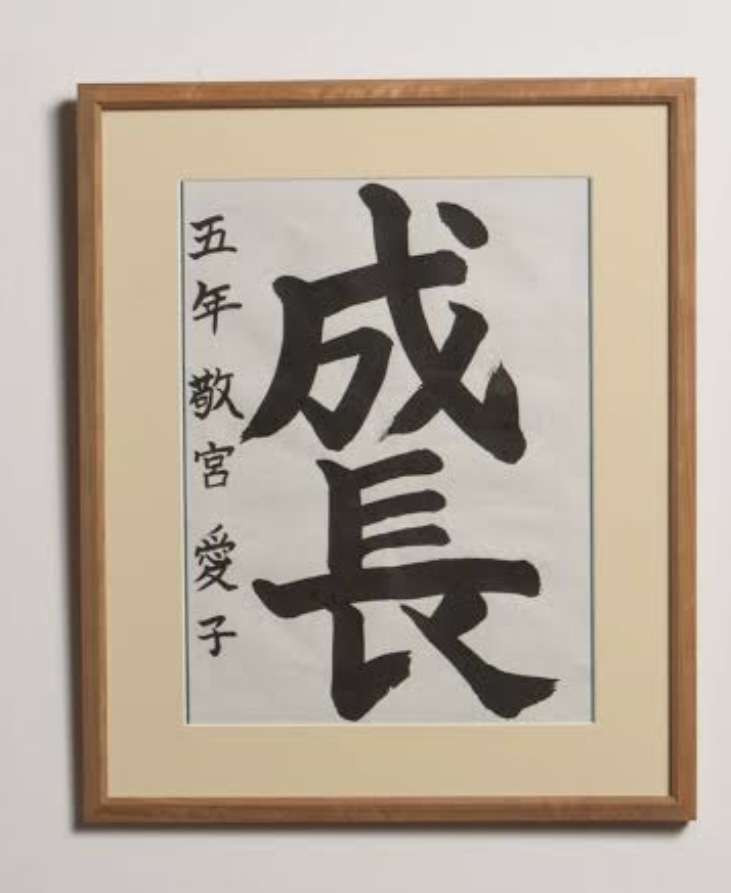 成長
五年 敬宮 愛子